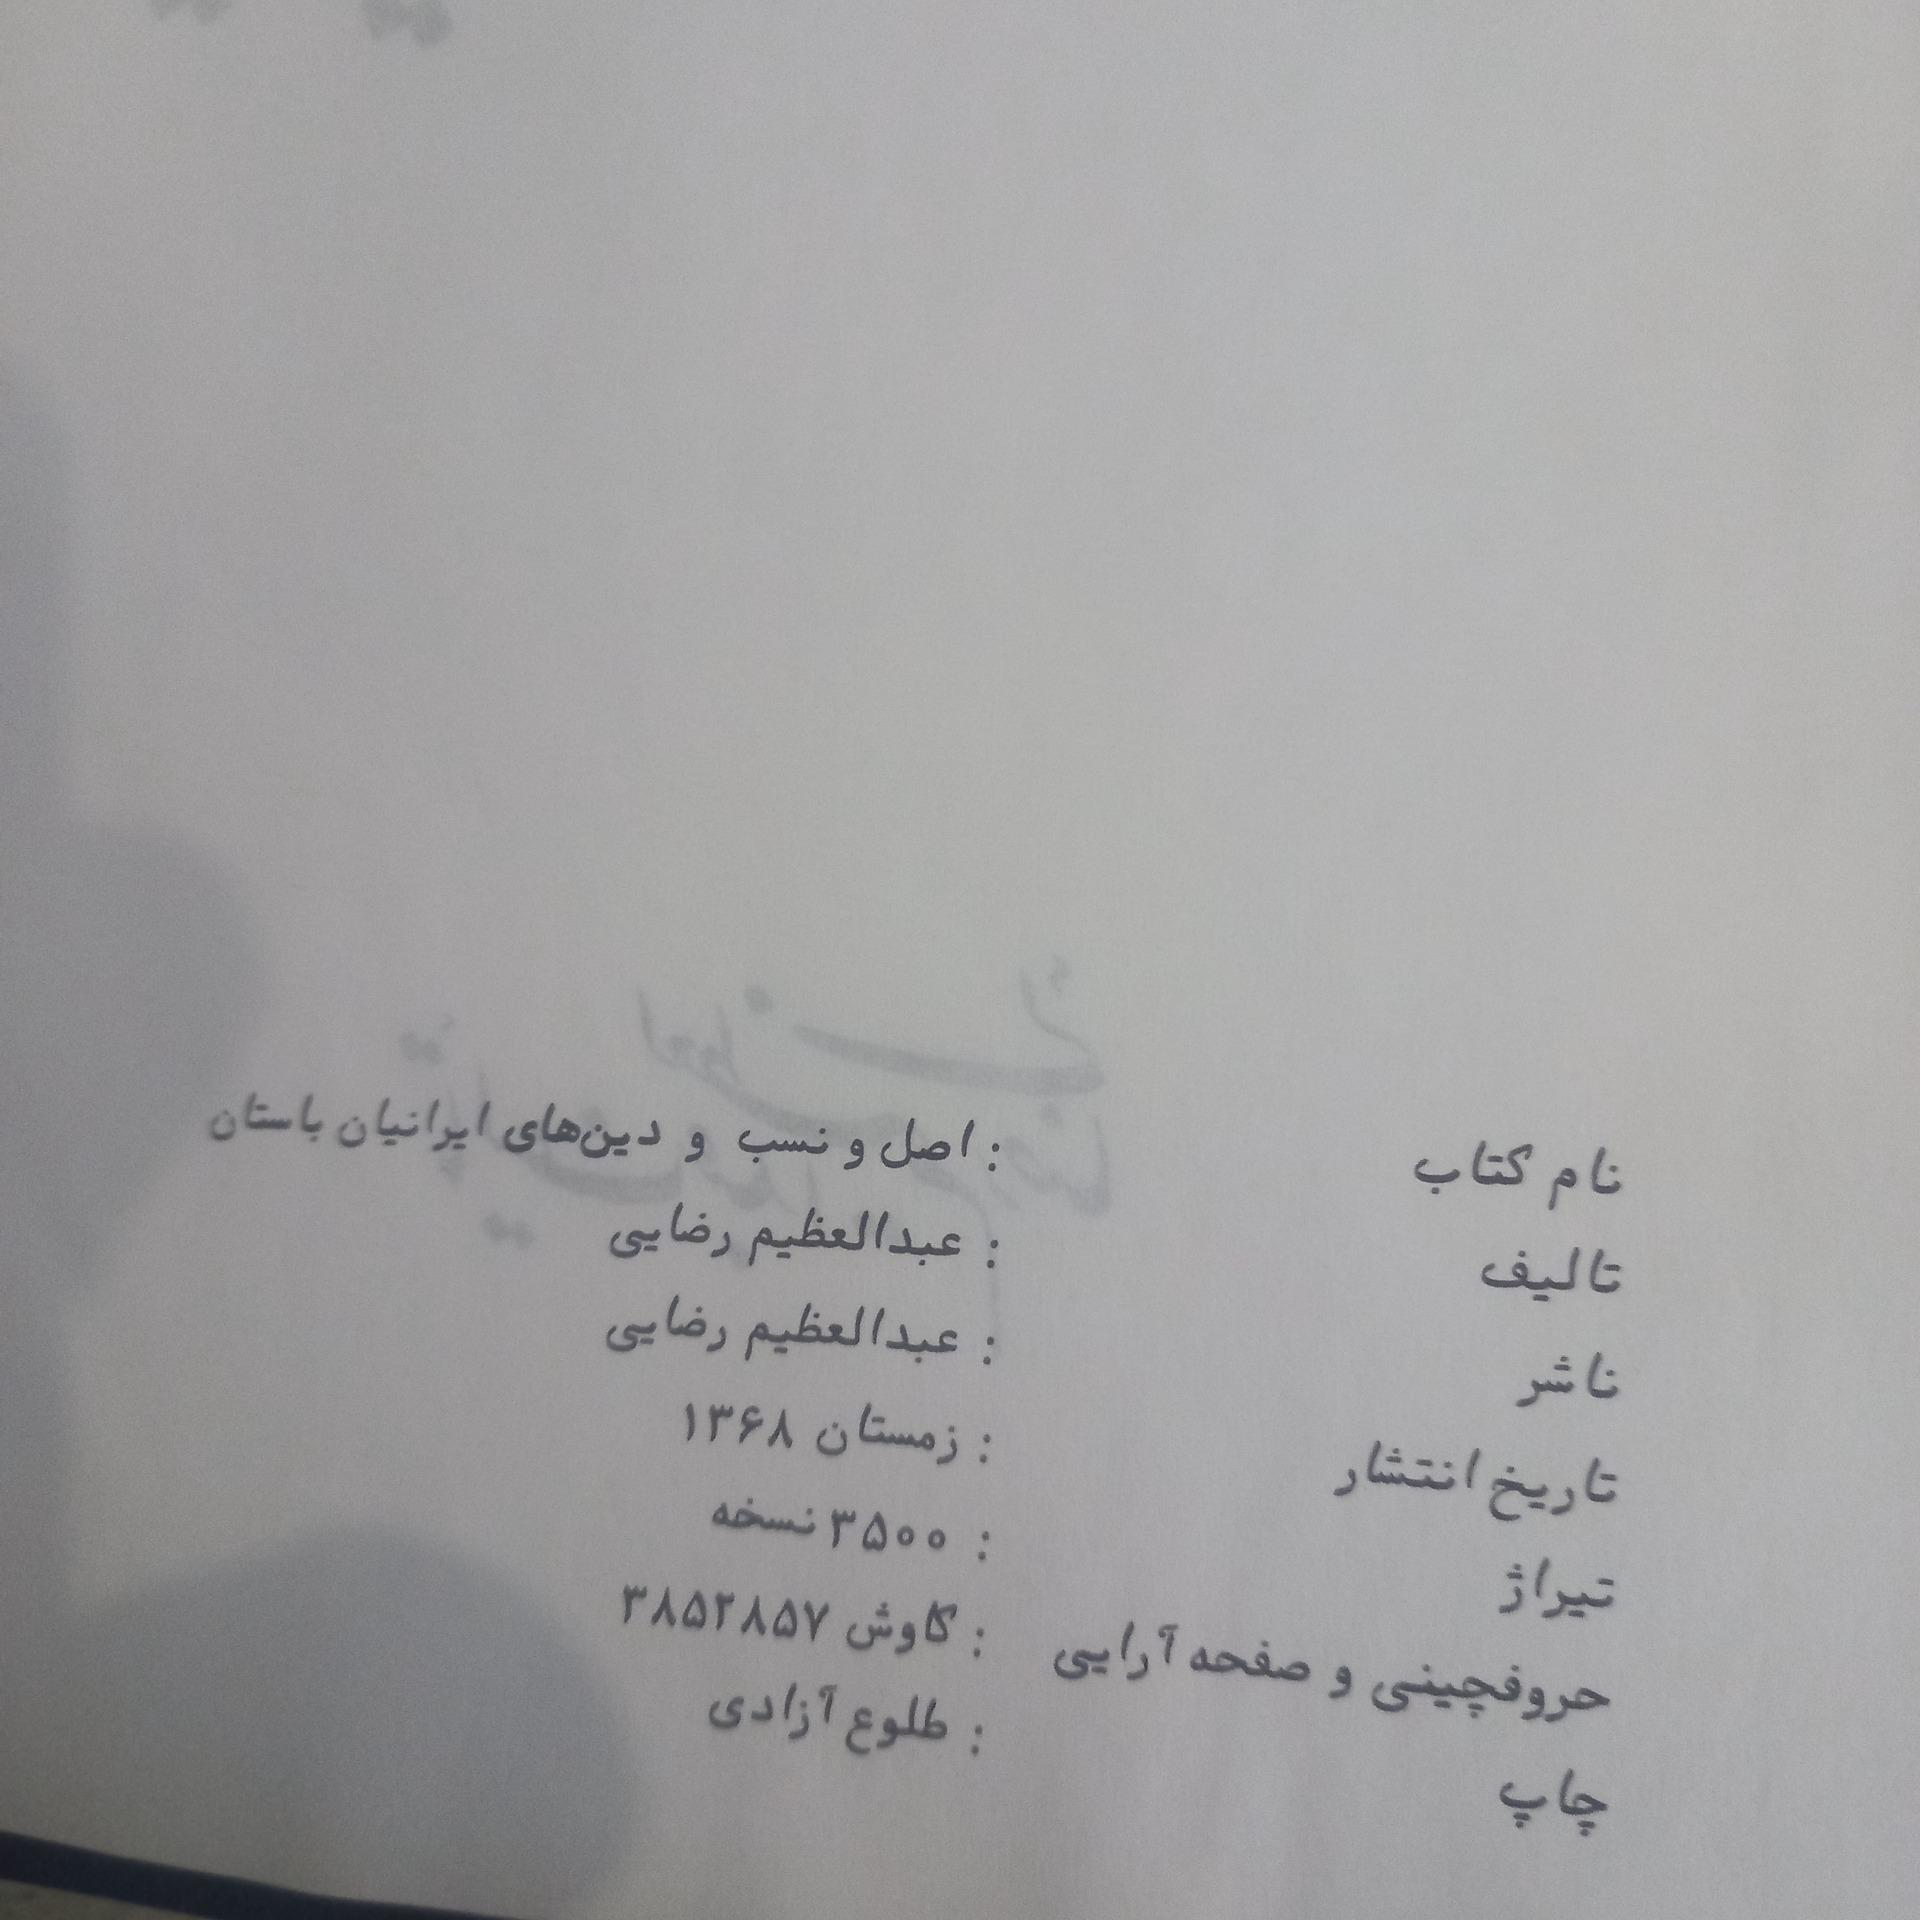 نام کتاب : اصل و نسب و دین‌های ایرانیان باستان
تالیف : عبدالعظیم رضایی
ناشر : عبدالعظیم رضایی
تاریخ انتشار : زمستان ۱۳۶۸
تیراژ : ۳۵۰۰ نسخه
حروفچینی و صفحه آرایی : کاوش ۳۸۵۲۸۵۷
چاپ : طلوع آزادی